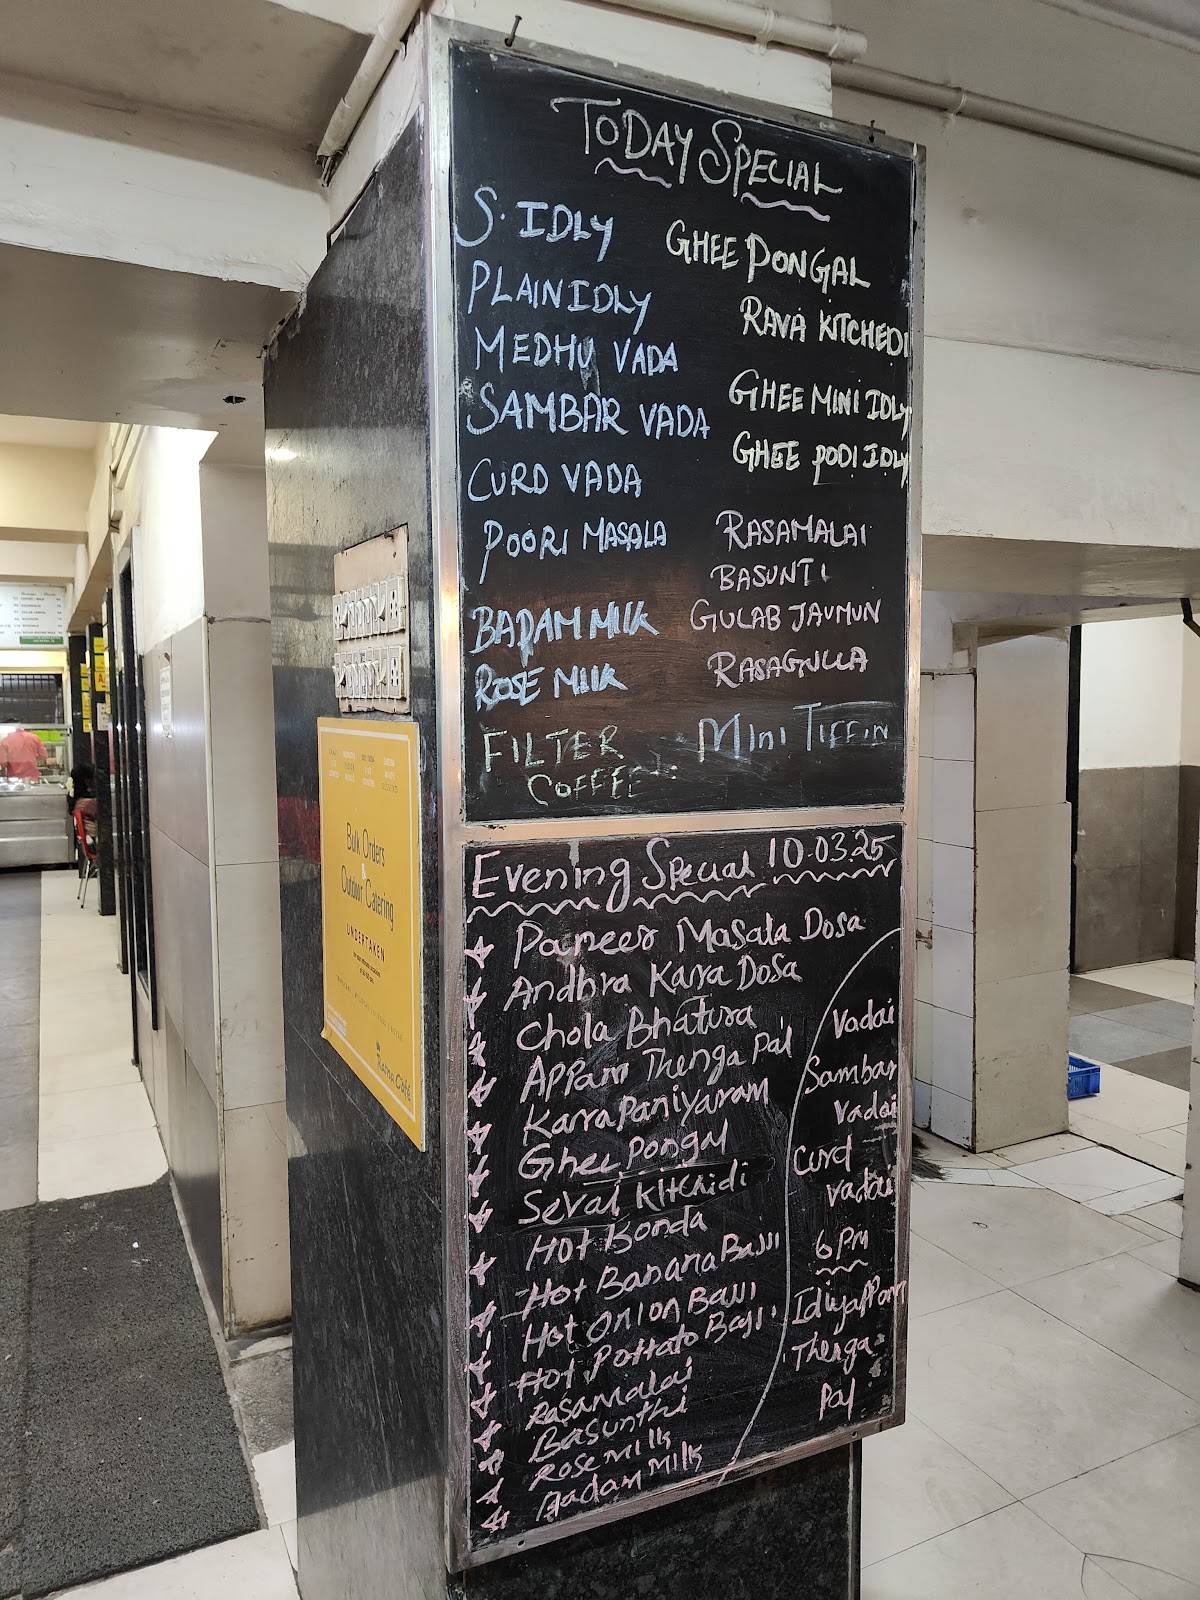 TODAY SPECIAL
S. IDLY
PLAIN IDLY
MEDHU VADA
SAMBAR VADA
CURD VADA
POORI MASALA
BADAM MILK
ROSE MILK
FILTER
COFFEE
GHEE PONGAL
RAVA KITCHEDI
GHEE MINI IDLY
GHEE PODI IDLY
RASAMALAI
BASUNTI
GULAB JAUMUN
RASAGULLA
MINI TIFFIN
Evening Special 10.03.25
Paneer Masala Dosa
Andhra Kara Dosa
Chola Bhatura
Appam Thenga Pal
Kara paniyaram
Ghee Pongal
Sevai Kitchidi
Hot Bonda
Hot Banana Bajji
Hot Onion Bajji
Hot Pottato Bajji
Rasamalai
Basunthi
Rose Milk
Badam Milk
Vadai
Sambar
Vadai
Curd
Vadai
6 Pm
Idiyappam
Thenga
Pal
Bulk Orders
&
Outdoor Catering
UNDERTAKEN
Ratna Café